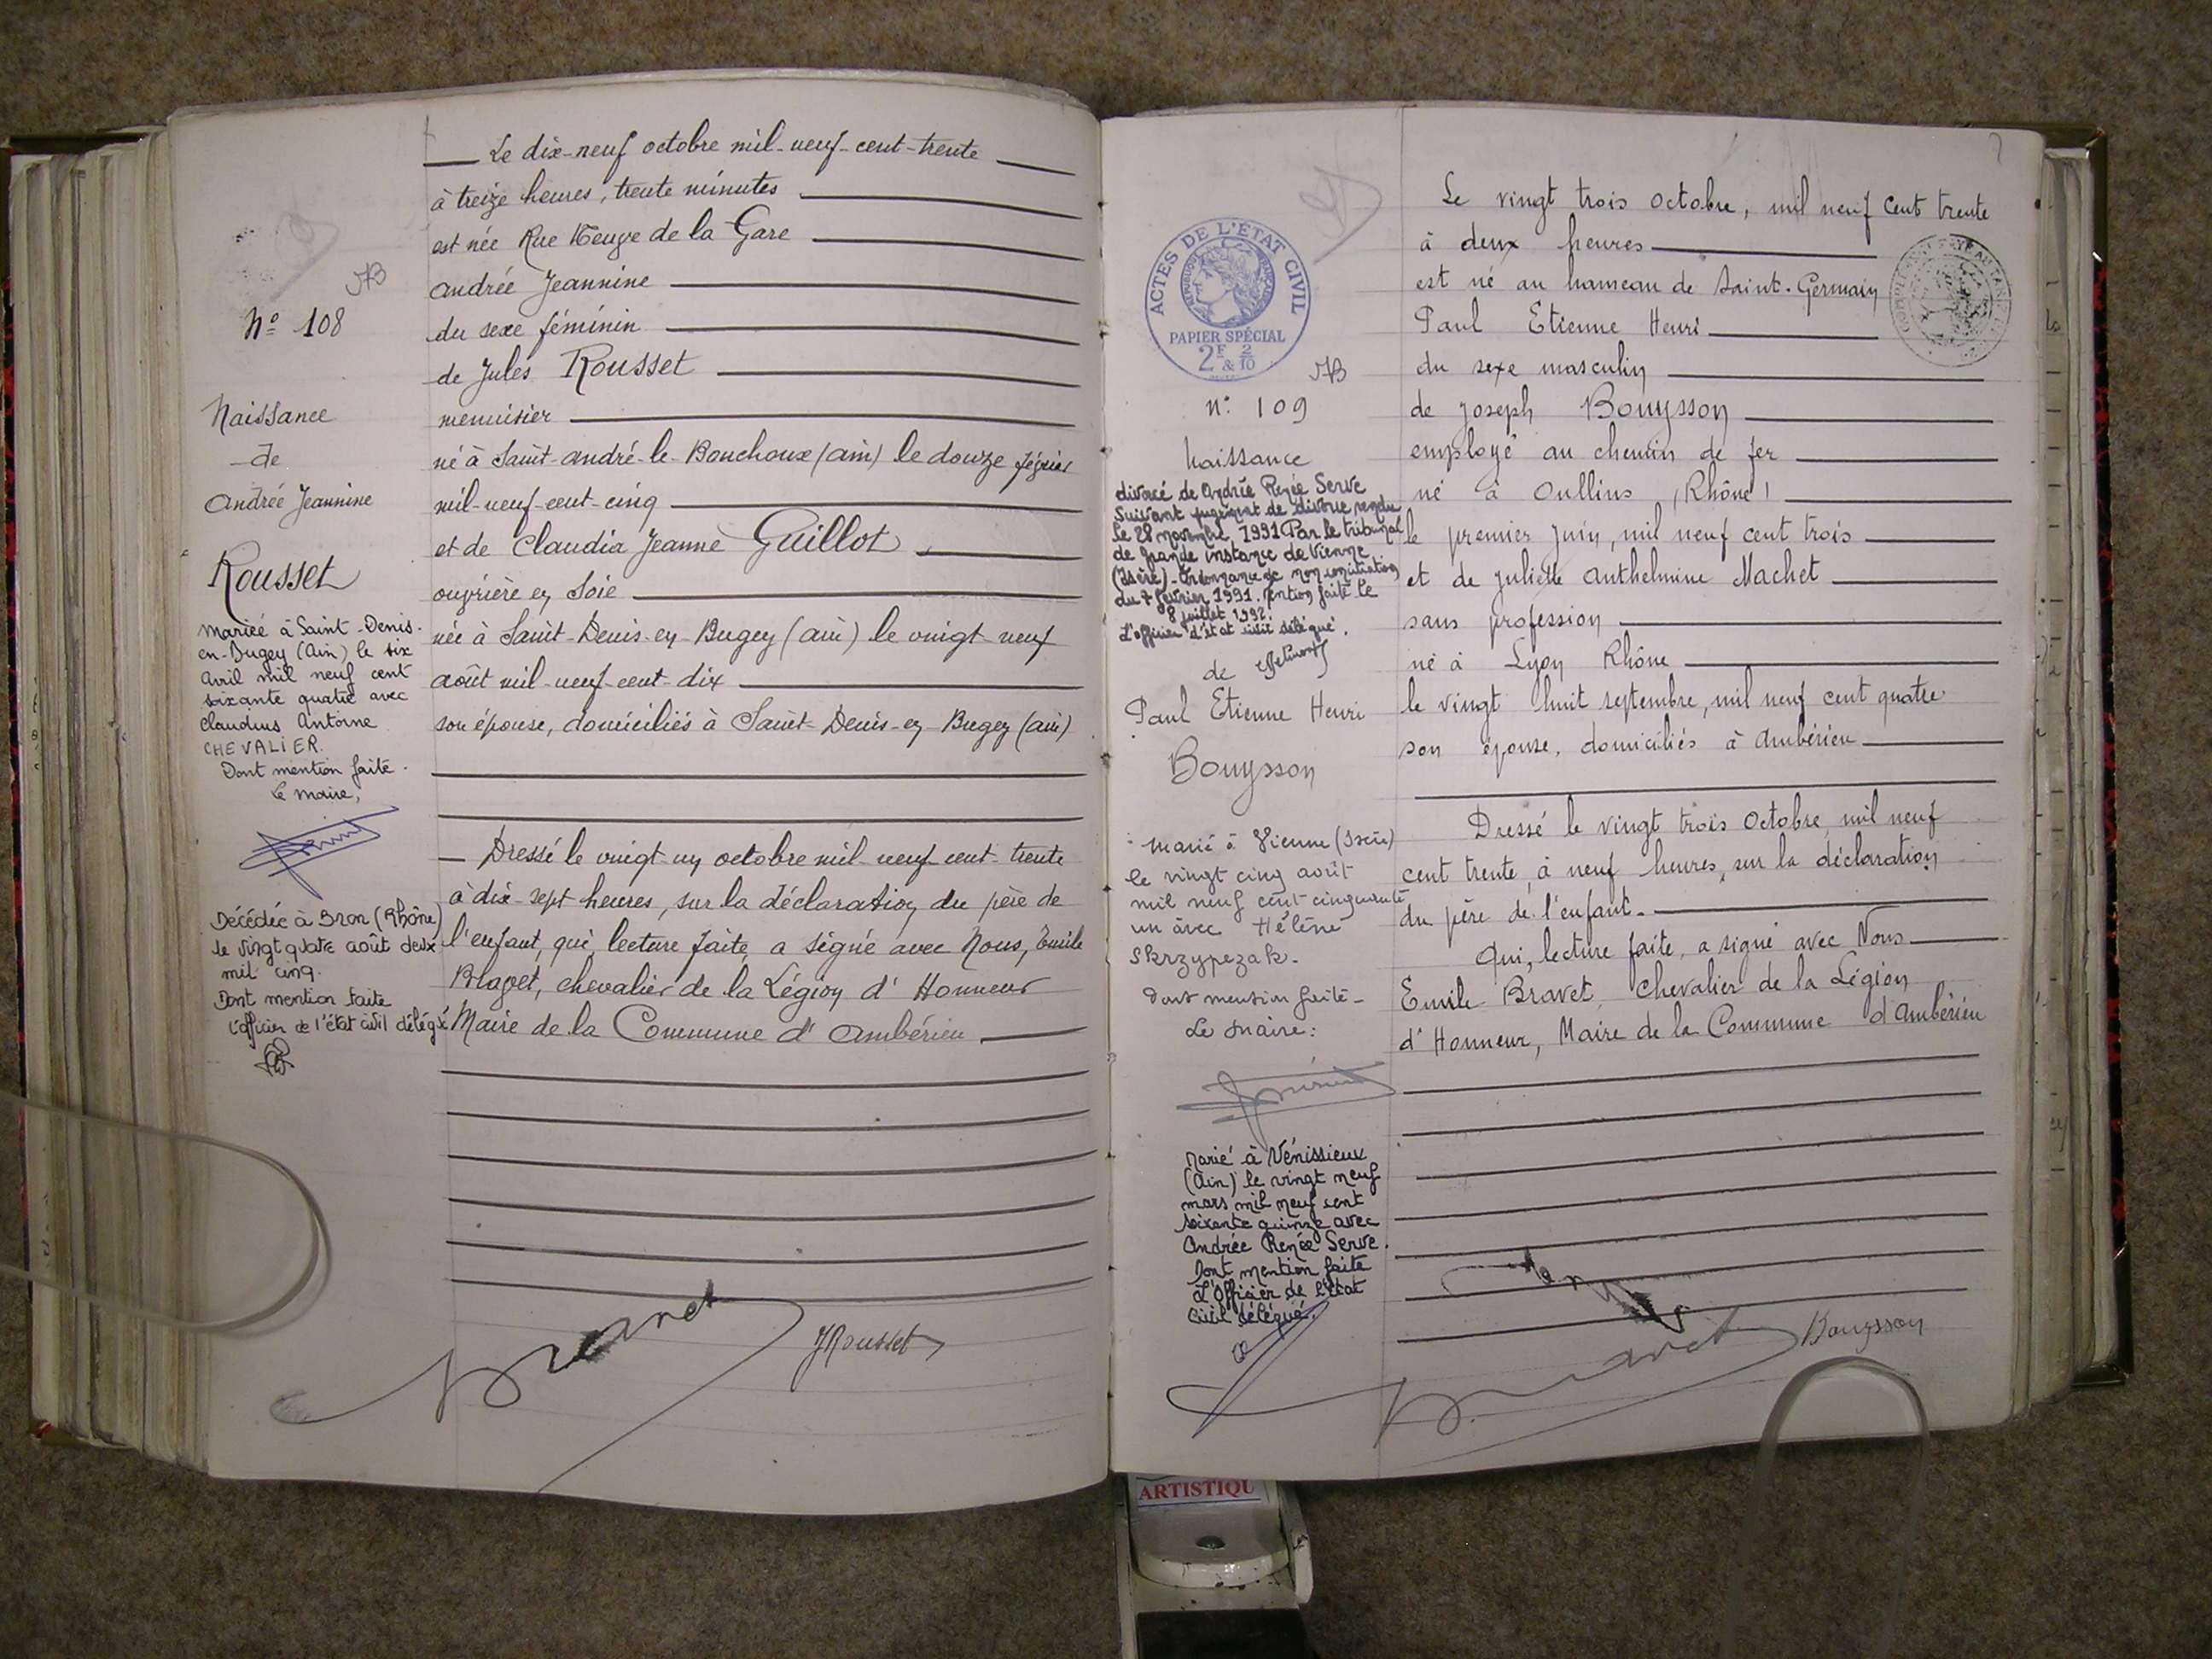 Le dix-neuf octobre mil-neuf-cent-trente
à treize heures, trente minutes
est née Rue Neuve de la Gare
Andrée Jeannine
du sexe féminin
de Jules Rousset
menuisier
né à Saint-André-le-Bouchoux (Ain) le douze février
mil-neuf-cent-cinq
et de Claudia Jeanne Guillot
ouvrière en soie
née à Saint-Denis-en-Bugey (Ain) le vingt-neuf
août mil-neuf-cent-dix
son épouse, domiciliés à Saint-Denis-en-Bugey (Ain)
Dressé le vingt-un octobre mil-neuf-cent-trente
à dix-sept heures, sur la déclaration du père de
l'enfant, qui, lecture faite, a signé avec Nous, Emile
Bravet, chevalier de la Légion d'Honneur
Maire de la Commune d'Ambérieu
Bravet
JRousset
N° 108
Naissance
de
Andrée Jeannine
Rousset
Mariée à Saint-Denis-
en-Bugey (Ain) le six
avril mil neuf cent
soixante quatre avec
Claudius Antoine
CHEVALIER.
Dont mention faite.
Le Maire,
Décédée à Bron (Rhône)
le vingt quatre août deux
mil cinq.
Dont mention faite
L'officier de l'état civil délégué
ACTES DE L'ÉTAT CIVIL
RÉPUBLIQUE FRANÇAISE
PAPIER SPÉCIAL
2F & 2/10
N° 109
Naissance
divorcé de Andrée Renée Serve
Suivant jugement de divorce rendu
le 28 novembre 1991 Par le tribunal
de grande instance de Vienne
(Isère) - Ordonnance de non conciliation
du 7 février 1991. Mention faite le
8 juillet 1992.
L'officier d'état civil délégué.
de
Paul Etienne Henri
Bouysson
Marié à Vienne (Isère)
le vingt cinq août
mil neuf cent cinquante
un avec Hélène
Skrzypezak.
Dont mention faite -
Le Maire:
Marié à Vénissieux
(Ain) le vingt neuf
mars mil neuf cent
soixante quinze avec
Andrée Renée Serve.
Dont mention faite
L'Officier de l'état
civil délégué.
Le vingt trois Octobre, mil neuf cent trente
à deux heures
est né au hameau de Saint-Germain
Paul Etienne Henri
du sexe masculin
de Joseph Bouysson
employé au chemin de fer
né à Oullins (Rhône)
le premier juin, mil neuf cent trois
et de Juliette Anthelmine Machet
sans profession
né à Lyon Rhône
le vingt huit septembre, mil neuf cent quatre
son épouse, domiciliés à Ambérieu
Dressé le vingt trois Octobre, mil neuf
cent trente, à neuf heures, sur la déclaration
du père de l'enfant.
Qui, lecture faite, a signé avec Nous
Emile Bravet, Chevalier de la Légion
d'Honneur, Maire de la Commune d'Ambérieu
Bravet
Bouysson
ARTISTIQU